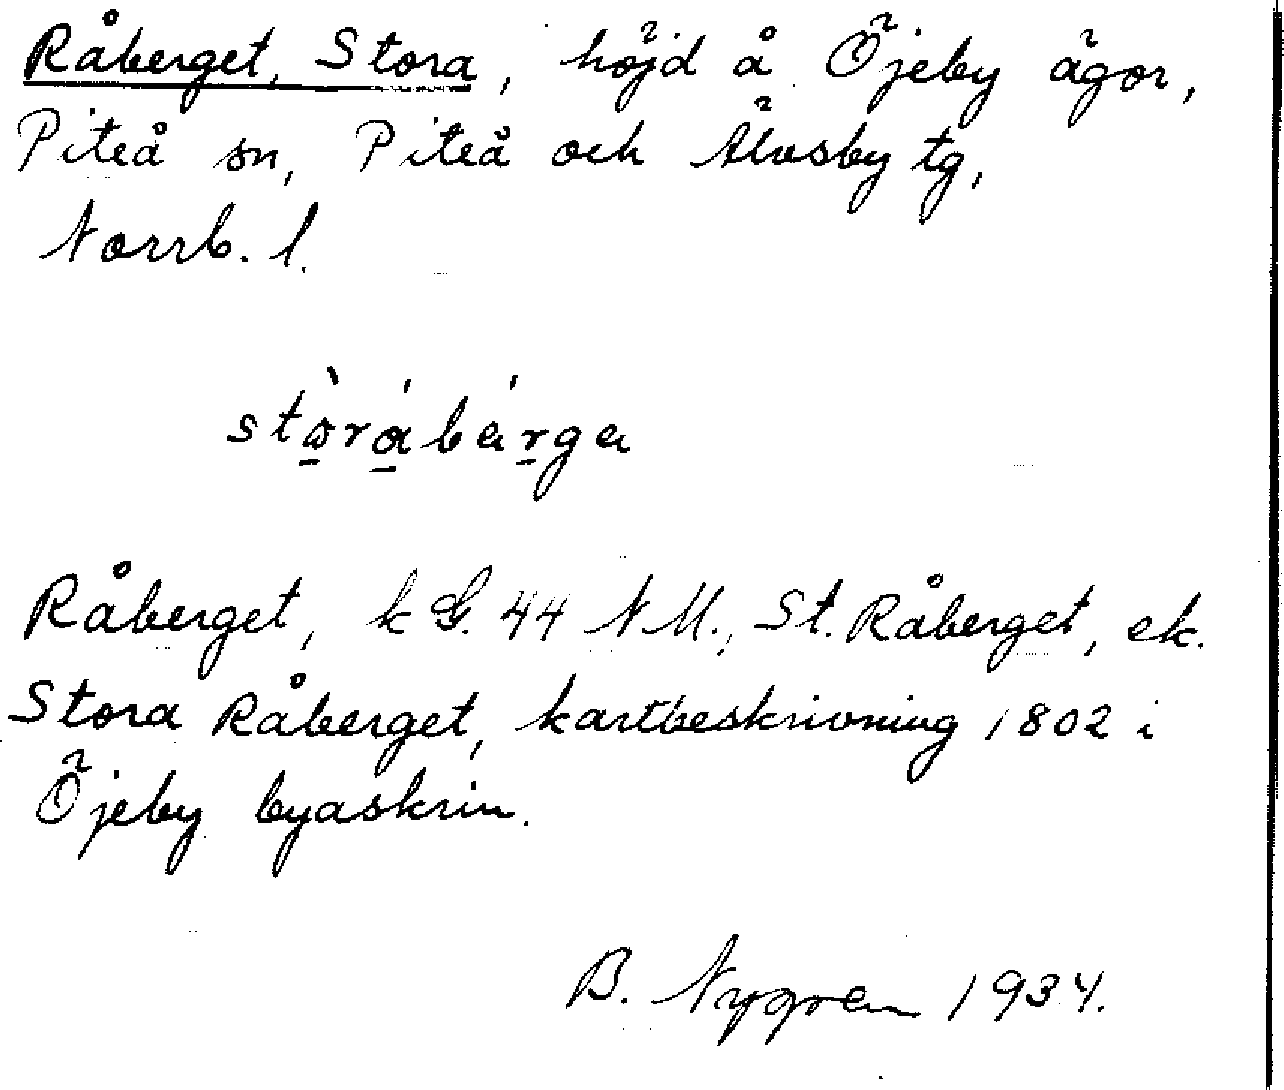 Råberget, Stora, höjd å Öjeby ägor,
Piteå sn, Piteå och Älvsby tg,
Norrb. l.
storabärga
Råberget, k G. 44 N M., St. Råberget, ek.
Stora Råberget, kartbeskrivning 1802 i
Öjeby byaskrin.
B. Nygren 1934.